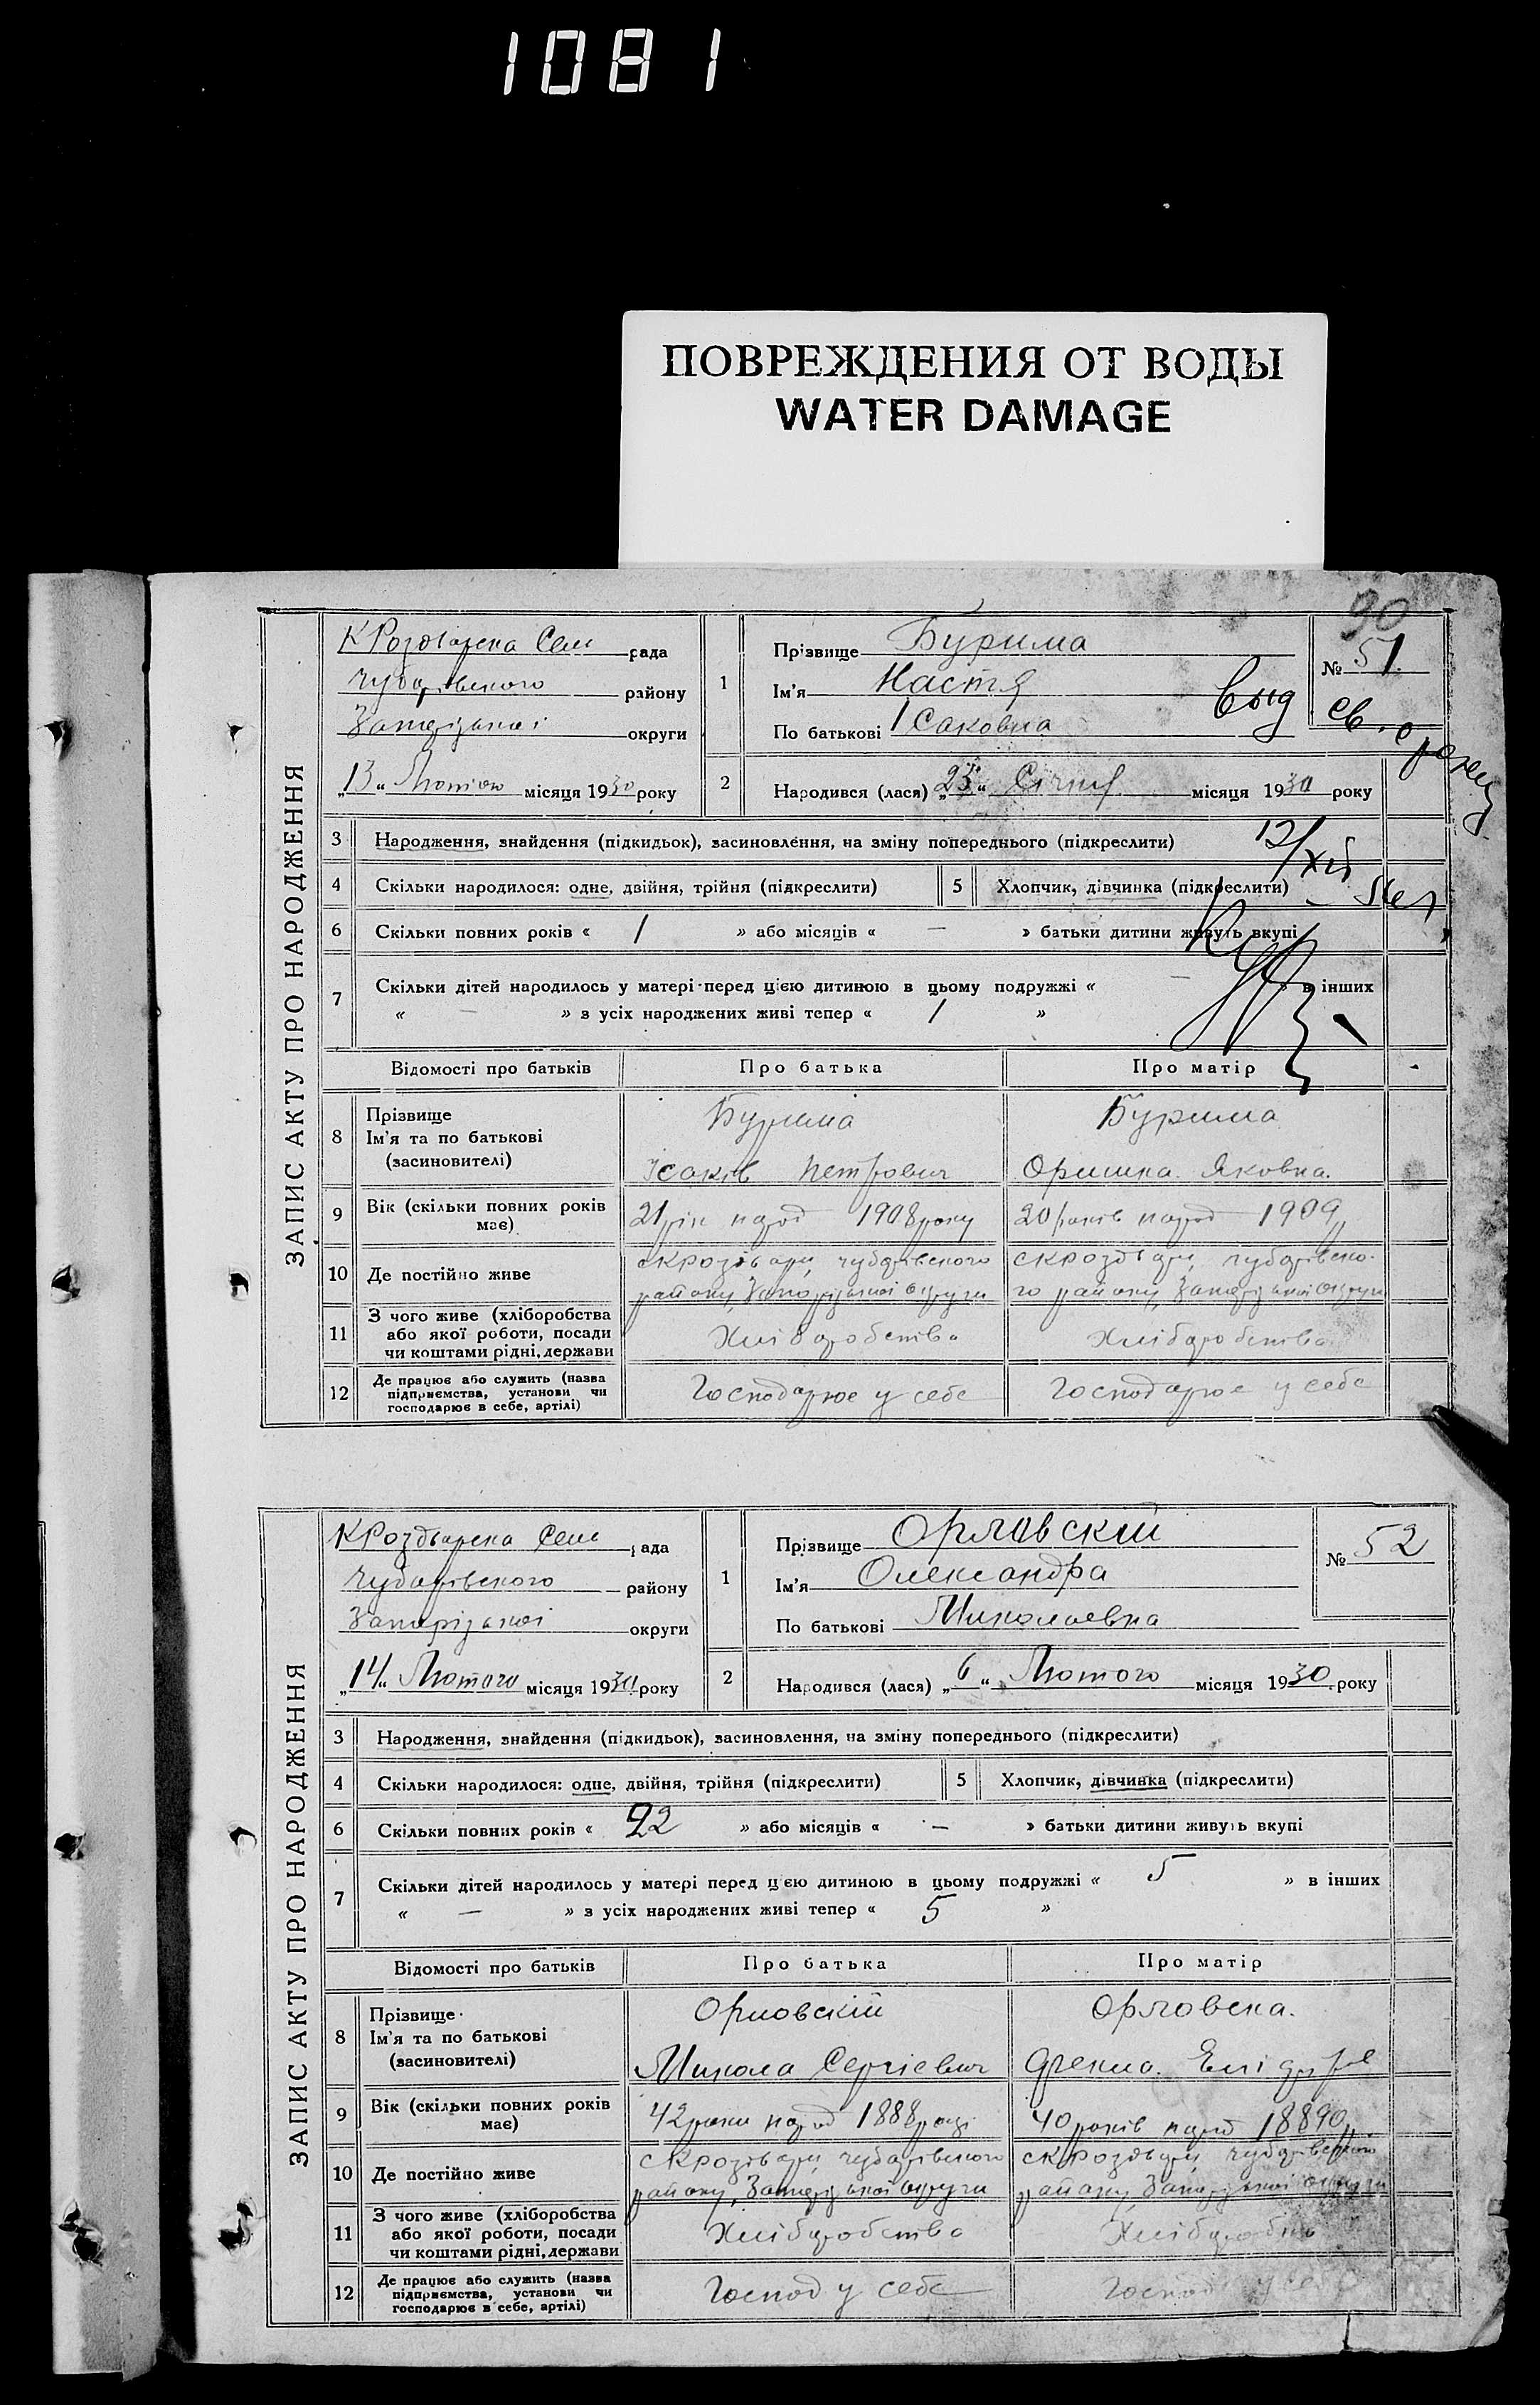 1081
ПОВРЕЖДЕНИЯ ОТ ВОДЫ
WATER DAMAGE
90
ЗАПИС АКТУ ПРО НАРОДЖЕННЯ
рада
Чубарівського району
Запорізької округи
„13“ Лютого місяця 1930 року
1
Прізвище Бурима
Ім'я Настя
По батькові Ісаковна
№ 51
Выд св. о рожд
2
Народився (лася) „23“ Січня місяця 1930 року
3 Народження, знайдення (підкидьок), засиновлення, на зміну попереднього (підкреслити)
12/XII
4 Скільки народилося: одне, двійня, трійня (підкреслити)
5 Хлопчик, дівчинка (підкреслити)
6 Скільки повних років « 1 » або місяців « — » батьки дитини живуть вкупі
7 Скільки дітей народилось у матері перед цією дитиною в цьому подружжі « — » в інших
« — » з усіх народжених живі тепер « 1 »
Відомості про батьків Про батька Про матір
8 Прізвище
Ім'я та по батькові
(засновителі)
Бурима
Ісаків Петрович
Бурима
Оришка Яковна.
9 Вік (скільки повних років має)
21 рік народ 1908 року
20 років народ 1909 р
10 Де постійно живе
чубарівського
району, Запорізької округи
чубарівсько-
го району, Запорізької округи
11 З чого живе (хліборобства
або якої роботи, посади
чи коштами рідні, держави
Хліборобство
Хліборобство
12 Де працює або служить (назва
підприємства, установи чи
господарює в себе, артілі)
Господарює у себе
Господарює у себе
ЗАПИС АКТУ ПРО НАРОДЖЕННЯ
рада
Чубарівського району
Запорізької округи
„14“ Лютого місяця 1930 року
1
Прізвище Орловскій
Ім'я Олександра
По батькові Миколаевна
№ 52
2
Народився (лася) „6“ Лютого місяця 1930 року
3 Народження, знайдення (підкидьок), засиновлення, на зміну попереднього (підкреслити)
4 Скільки народилося: одне, двійня, трійня (підкреслити)
5 Хлопчик, дівчинка (підкреслити)
6 Скільки повних років « 22 » або місяців « — » батьки дитини живуть вкупі
7 Скільки дітей народилось у матері перед цією дитиною в цьому подружжі « 5 » в інших
« — » з усіх народжених живі тепер « 5 »
Відомості про батьків Про батька Про матір
8 Прізвище
Ім'я та по батькові
(засиновителі)
Орловскій
Микола Сергієвич
Орловска.
9 Вік (скільки повних років має)
42 роки народ 1888 році
40 років народ 18890 р
10 Де постійно живе
чубарівського
району, Запорізької округи
чубарівського
району, Запорізької округи
11 З чого живе (хліборобства
або якої роботи, посади
чи коштами рідні, держави
Хліборобство
12 Де працює або служить (назва
підприємства, установи чи
господарює в себе, артілі)
Господ у себе
Господ у себе